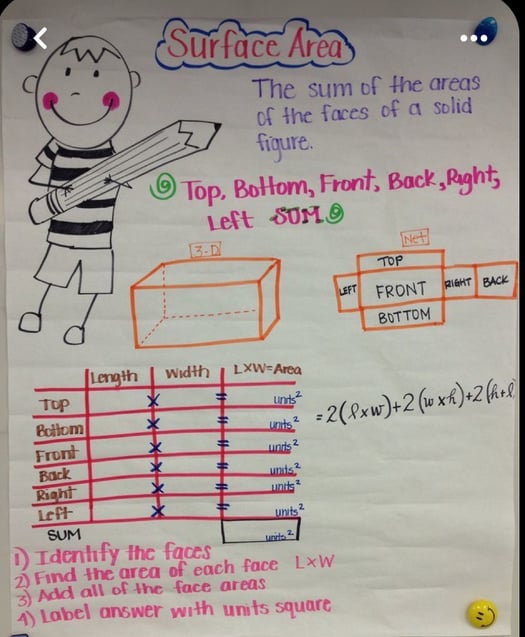 Surface Area
The sum of the areas
of the faces of a solid
figure.
Top, Bottom, Front, Back, Right,
Left SUM
3-D
Net
TOP
LEFT FRONT RIGHT BACK
BOTTOM
Length Width L×W=Area
Top × = units²
Bottom × = units²
Front × = units²
Back × = units²
Right × = units²
Left × = units²
SUM units²
=2(l×w)+2(w×h)+2(h+l
1) Identify the faces
2) Find the area of each face L×W
3) Add all of the face areas
4) Label answer with units square